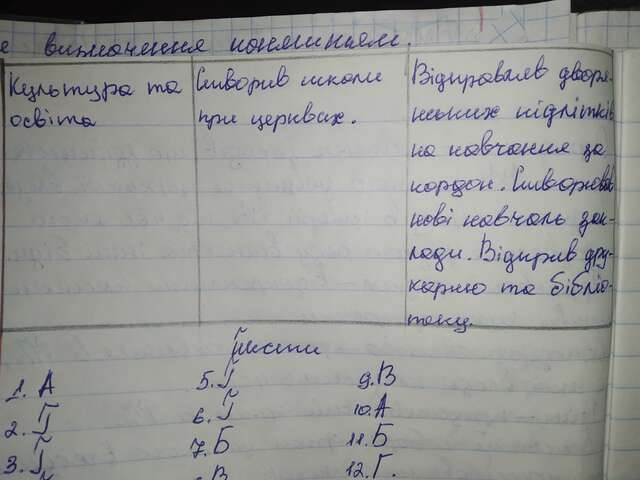 е визначення поняттям.
Культура та
освіта
Створив школи
при церквах.
Відправляв дворя-
нських підлітків
на навчання за
кордон. Створював
нові навчаль зак-
лади. Відкрив дру-
карню та бібліо-
теку.
Тести
1. А
2. Г
3. Г
5. Г
6. Г
7. Б
В
9. В
10. А
11. Б
12. Г.